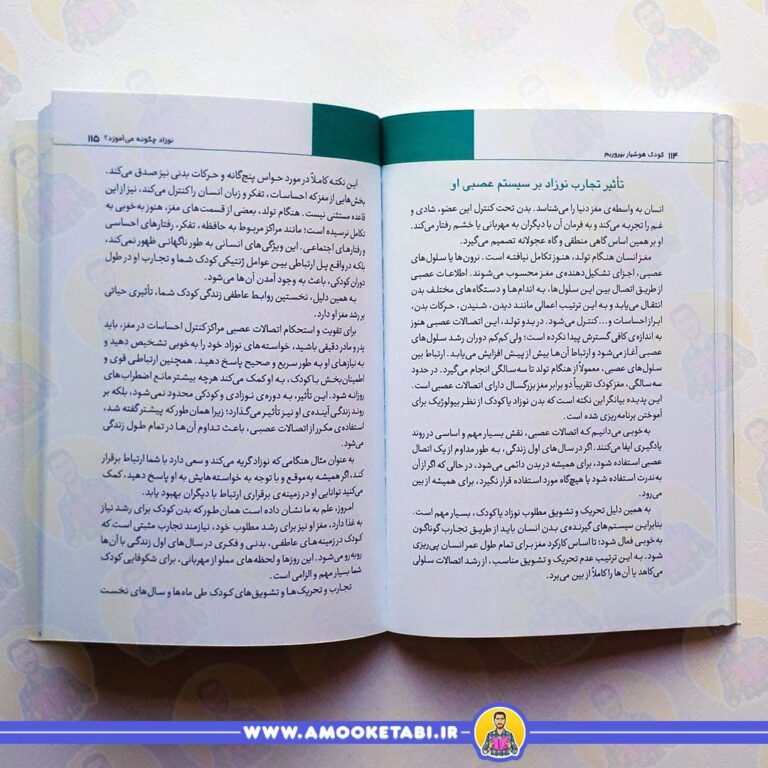 ۱۱۴ کودک هوشیار بپروریم
تأثیر تجارب نوزاد بر سیستم عصبی او
انسان به واسطه‌ی مغز دنیا را می‌شناسد. بدن تحت کنترل این عضو، شادی و
غم را تجربه می‌کند و به فرمان آن با دیگران به مهربانی یا خشم رفتار می‌کند.
او بر همین اساس گاهی منطقی و گاه عجولانه تصمیم می‌گیرد.
مغز انسان هنگام تولد، هنوز تکامل نیافته است. نرون‌ها یا سلول‌های
عصبی، اجزای تشکیل‌دهنده‌ی مغز محسوب می‌شوند. اطلاعات عصبی
از طریق اتصال بین این سلول‌ها، به اندام‌ها و دستگاه‌های مختلف بدن
انتقال می‌یابد و به این ترتیب اعمالی مانند دیدن، شنیدن، حرکات بدن،
ابراز احساسات و... کنترل می‌شود. در بدو تولد، این اتصالات عصبی هنوز
به اندازه‌ی کافی گسترش پیدا نکرده است؛ ولی کم‌کم دوران رشد سلول‌های
عصبی آغاز می‌شود و ارتباط آن‌ها بیش از پیش افزایش می‌یابد. ارتباط بین
سلول‌های عصبی، معمولاً از هنگام تولد تا سه‌سالگی انجام می‌گیرد. در حدود
سه سالگی، مغز کودک تقریباً دو برابر مغز بزرگسال دارای اتصالات عصبی است.
این پدیده بیانگر این نکته است که بدن نوزاد یا کودک از نظر بیولوژیک برای
آموختن برنامه‌ریزی شده است.
به‌خوبی می‌دانیم که اتصالات عصبی، نقش بسیار مهم و اساسی در روند
یادگیری ایفا می‌کنند. اگر در سال‌های اول زندگی، به طور مداوم از یک اتصال
عصبی استفاده شود، برای همیشه در بدن دائمی می‌شود، در حالی که اگر از آن
به‌ندرت استفاده شود یا هیچ‌گاه مورد استفاده قرار نگیرد، برای همیشه از بین
می‌رود.
به همین دلیل تحریک و تشویق مطلوب نوزاد یا کودک، بسیار مهم است.
بنابراین سیستم‌های گیرنده‌ی بدن انسان باید از طریق تجارب گوناگون
به خوبی فعال شود؛ تا اساس کارکرد مغز برای تمام طول عمر انسان پی‌ریزی
شود. به این ترتیب عدم تحریک و تشویق مناسب، از رشد اتصالات سلولی
می‌کاهد یا آن‌ها را کاملاً از بین می‌برد.
نوزاد چگونه می‌آموزد؟ ۱۱۵
این نکته کاملاً در مورد حواس پنج‌گانه و حرکات بدنی نیز صدق می‌کند.
بخش‌هایی از مغز که احساسات، تفکر و زبان انسان را کنترل می‌کند، نیز از این
قاعده مستثنی نیست. هنگام تولد، بعضی از قسمت‌های مغز، هنوز به خوبی به
تکامل نرسیده است؛ مانند مراکز مربوط به حافظه، تفکر، رفتارهای احساسی
و رفتارهای اجتماعی. این ویژگی‌های انسانی به طور ناگهانی ظهور نمی‌کند،
بلکه در واقع پل ارتباطی بین عوامل ژنتیکی کودک شما و تجارب او در طول
دوران کودکی، باعث به وجود آمدن آن‌ها می‌شود.
به همین دلیل، نخستین روابط عاطفی زندگی کودک شما، تأثیری حیاتی
بر رشد مغز او دارد.
برای تقویت و استحکام اتصالات عصبی مراکز کنترل احساسات در مغز، باید
پدر و مادر دقیقی باشید، خواسته‌های نوزاد خود را به‌خوبی تشخیص دهید و
به نیازهای او به طور سریع و صحیح پاسخ دهید. همچنین ارتباطی قوی و
اطمینان‌بخش با کودک، به او کمک می‌کند هرچه بیشتر مانع اضطراب‌های
روزانه شود. این تأثیر، به دوره‌ی نوزادی و کودکی محدود نمی‌شود، بلکه بر
روند زندگی آینده‌ی او نیز تأثیر می‌گذارد؛ زیرا همان طور که پیشتر گفته شد،
استفاده‌ی مکرر از اتصالات عصبی، باعث تداوم آن‌ها در تمام طول زندگی
می‌شود.
به عنوان مثال هنگامی که نوزاد گریه می‌کند و سعی دارد با شما ارتباط برقرار
کند، اگر همیشه به‌موقع و با توجه به خواسته‌هایش به او پاسخ دهید، کمک
می‌کنید توانایی او در زمینه‌ی برقراری ارتباط با دیگران بهبود یابد.
امروز، علم به ما نشان داده است همان طور که بدن کودک برای رشد نیاز
به غذا دارد، مغز او نیز برای رشد مطلوب خود، نیازمند تجارب مثبتی است که
کودک در زمینه‌های عاطفی، بدنی و فکری در سال‌های اول زندگی با آن‌ها
روبه‌رو می‌شود. این روزها و لحظه‌های مملو از مهربانی، برای شکوفایی کودک
شما بسیار مهم و الزامی است.
تجارب و تحریک‌ها و تشویق‌های کودک طی ماه‌ها و سال‌های نخست
WWW.AMOOKETABI.IR